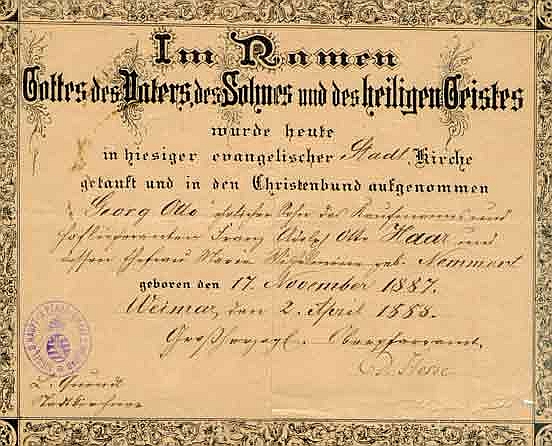 Im Namen
Gottes des Vaters, des Sohnes und des heiligen Geistes
wurde heute
in hiesiger evangelischer Stadt Kirche
getauft und in den Christenbund aufgenommen
Georg Otto ehelicher Sohn des Kaufmanns und
Hoflieferanten Franz Adolph Otto Haar und
dessen Ehefrau Marie geb. Nemmert
geboren den 17. November 1887.
Weimar, den 2. April 1888.
Großherzogl. Oberpfarramt.
D. Hesse
Stadtkirchner